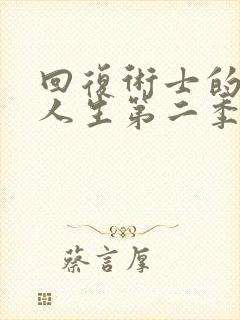 回復術士的
人生第二季
蔡言厚